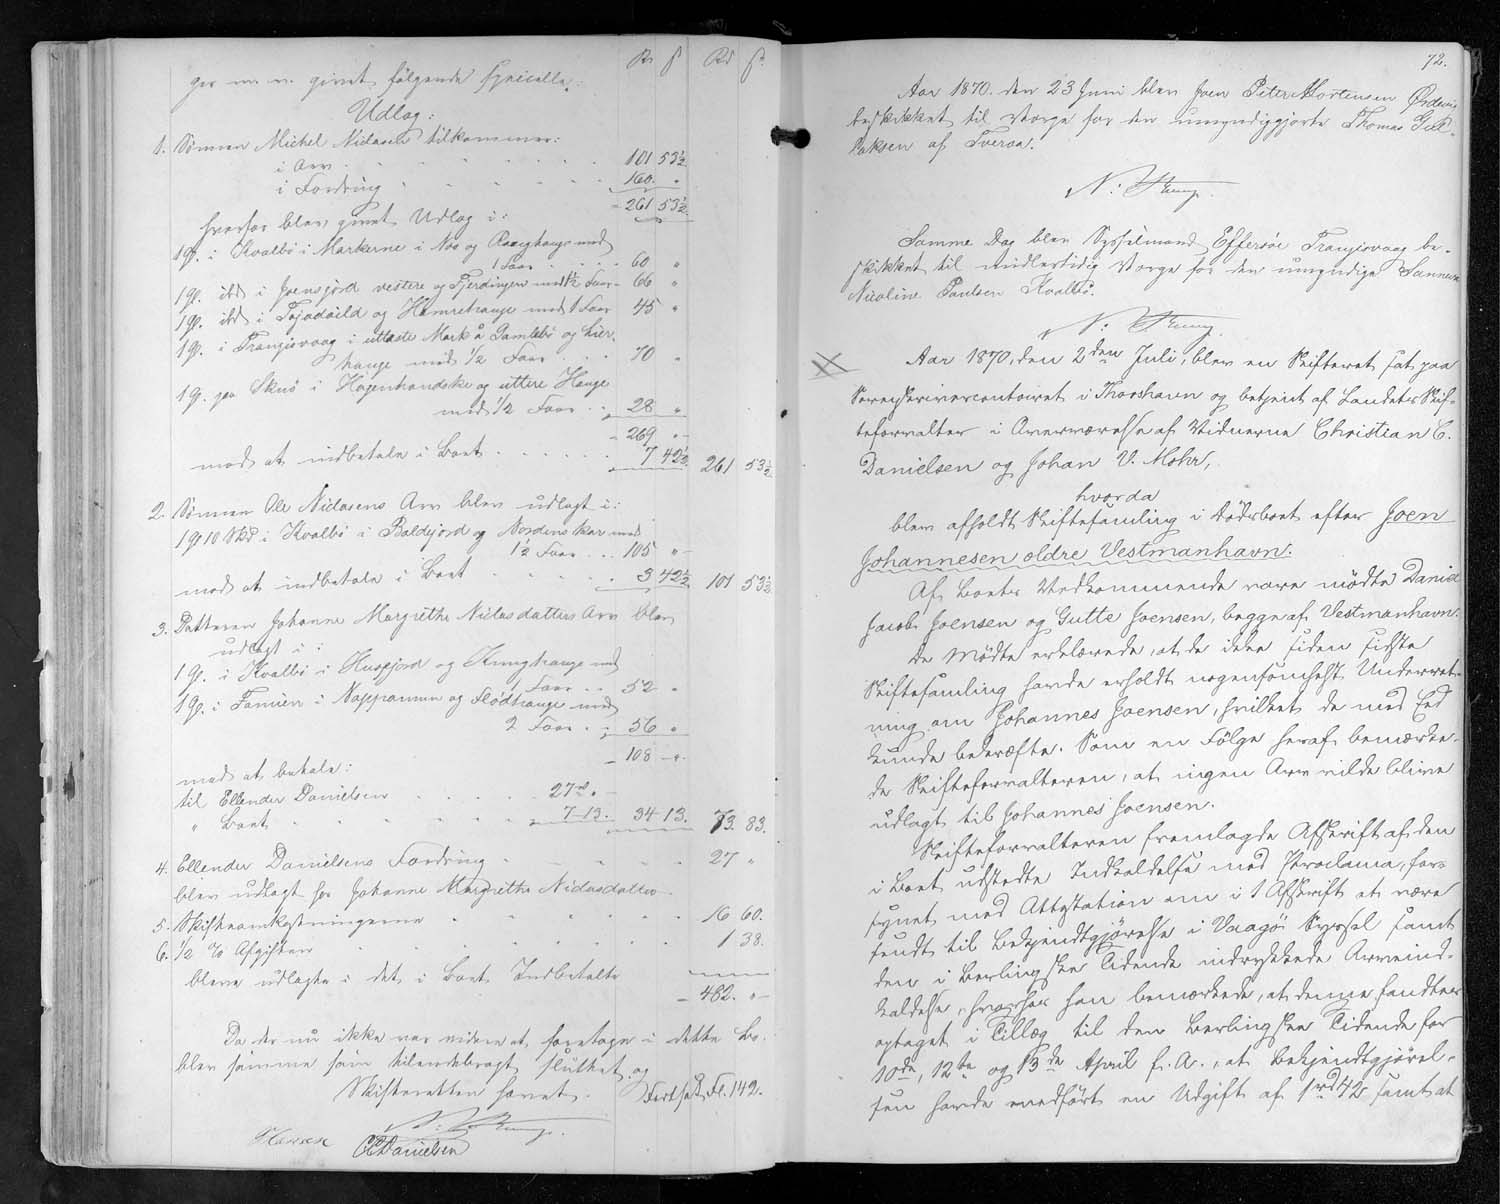 Rd ß Rd ß.
ger m. v. givet følgende specielle
Udlæg:
1. Sønnen Michel Niclasen tilkommer:
i Arv 101 53½
i Fordring 160. "
261 53½
hvorfor blev givet Udlæg i:
1 gl. i Kvalbø i Markerne i Nos og Rangehauge med
1 Faar 60 "
1 gl. ibd i Joensgjord vestere og Fjerdingen med 1½ Faar 66 "
1 gl. ibd i og Hamrehauge med 1 Faar 45 "
1 gl. i Trangisvaag i utteste Mark å Gamlebø og Lier-
hauge med ½ Faar 70 "
1 gl. paa Skuø i og uttere Hauge
med ½ Faar 28 "
269 "
mod at indbetale i Boet 7 42½ 261 53½
2. Sønnen Ole Niclasens Arv blev udlagt i:
1 gl 10 Skd i Kvalbø i Boldejord og Nordenskar med
1½ Faar 105 "
mod at indbetale i Boet 3 42½ 101 53½
3. Datteren Johanne Margrethe Niclasdatters Arv blev
udlagt i:
1 gl. i Kvalbø i Huusgjord og med
1 Faar 52 "
1 gl. i Famien i og Flødhauge med
2 Faar 56 "
108 "
mod at betale:
til Ellender Danielsen 27 rd "
" Boet 7-13. 34 13. 73. 83.
4. Ellender Danielsens Fordring 27 "
blev udlagt hos Johanne Margrethe Niclasdatter
5. Skifteomkostningerne 16 60.
6. ½ % Afgiften 1 38.
bleve udlagte i det i Boet Indbetalte
482. "
Da der nu ikke var videre at foretage i dette Bo.
blev samme som tilendebragt sluttet og
Skifteretten hævet. Fortsat Fl. 142.
N: Krug.
CCDanielsen
72.
Aar 1870. den 23 Juni blev Joen Peter Mortensen Ørdevig
beskikket til Værge for den umyndiggjorte Thomas
af Tveraa.
N: Krug.
Samme Dag blev Sysselmand Effersøe Trangisvaag be-
skikket til midlertidig Værge for den umyndige Sanneva
Nicoline Poulsen Kvalbø.
N: Krug.
Aar 1870, den 2den Juli, blev en Skifteret sat paa
Sorenskrivercontoiret i Thorshavn og betjent af Landets Skif-
teforvalter i Overværelse af Vidnerne Christian C.
Danielsen og Johan V. Mohr,
hvorda
blev afholdt Skiftesamling i Dødsboet efter Joen
Johannesen ældre Vestmanhavn.
Af Boets Vedkommende vare mødte Daniel
Jacob Joensen og Gutte Joensen, begge af Vestmanhavn.
De Mødte erklærede, at de ikke siden sidste
Skiftesamling havde erholdt nogensomhelst Underret-
ning om Johannes Joensen, hvilket de med Eed
kunde bekræfte. Som en Følge heraf bemærke-
de Skifteforvalteren, at ingen Arv vilde blive
udlagt til Johannes Joensen.
Skifteforvalteren fremlagde Afskrift af den
i Boet udstedte Indkaldelse med Proclama, for-
synet med Attestation om i 1 Afskrift at være
sendt til Bekjendtgjørelse i Vaagø Syssel samt
den i Berlingske Tidende indrykkede Arveind-
kaldelse, hvorhos han bemærkede, at denne fandtes
optaget i Tillæg til den Berlingske Tidende for
10de, 12te og 13de April f. A., at Bekjendtgjørel-
sen havde medført en Udgift af 1 rd 42 ß samt at